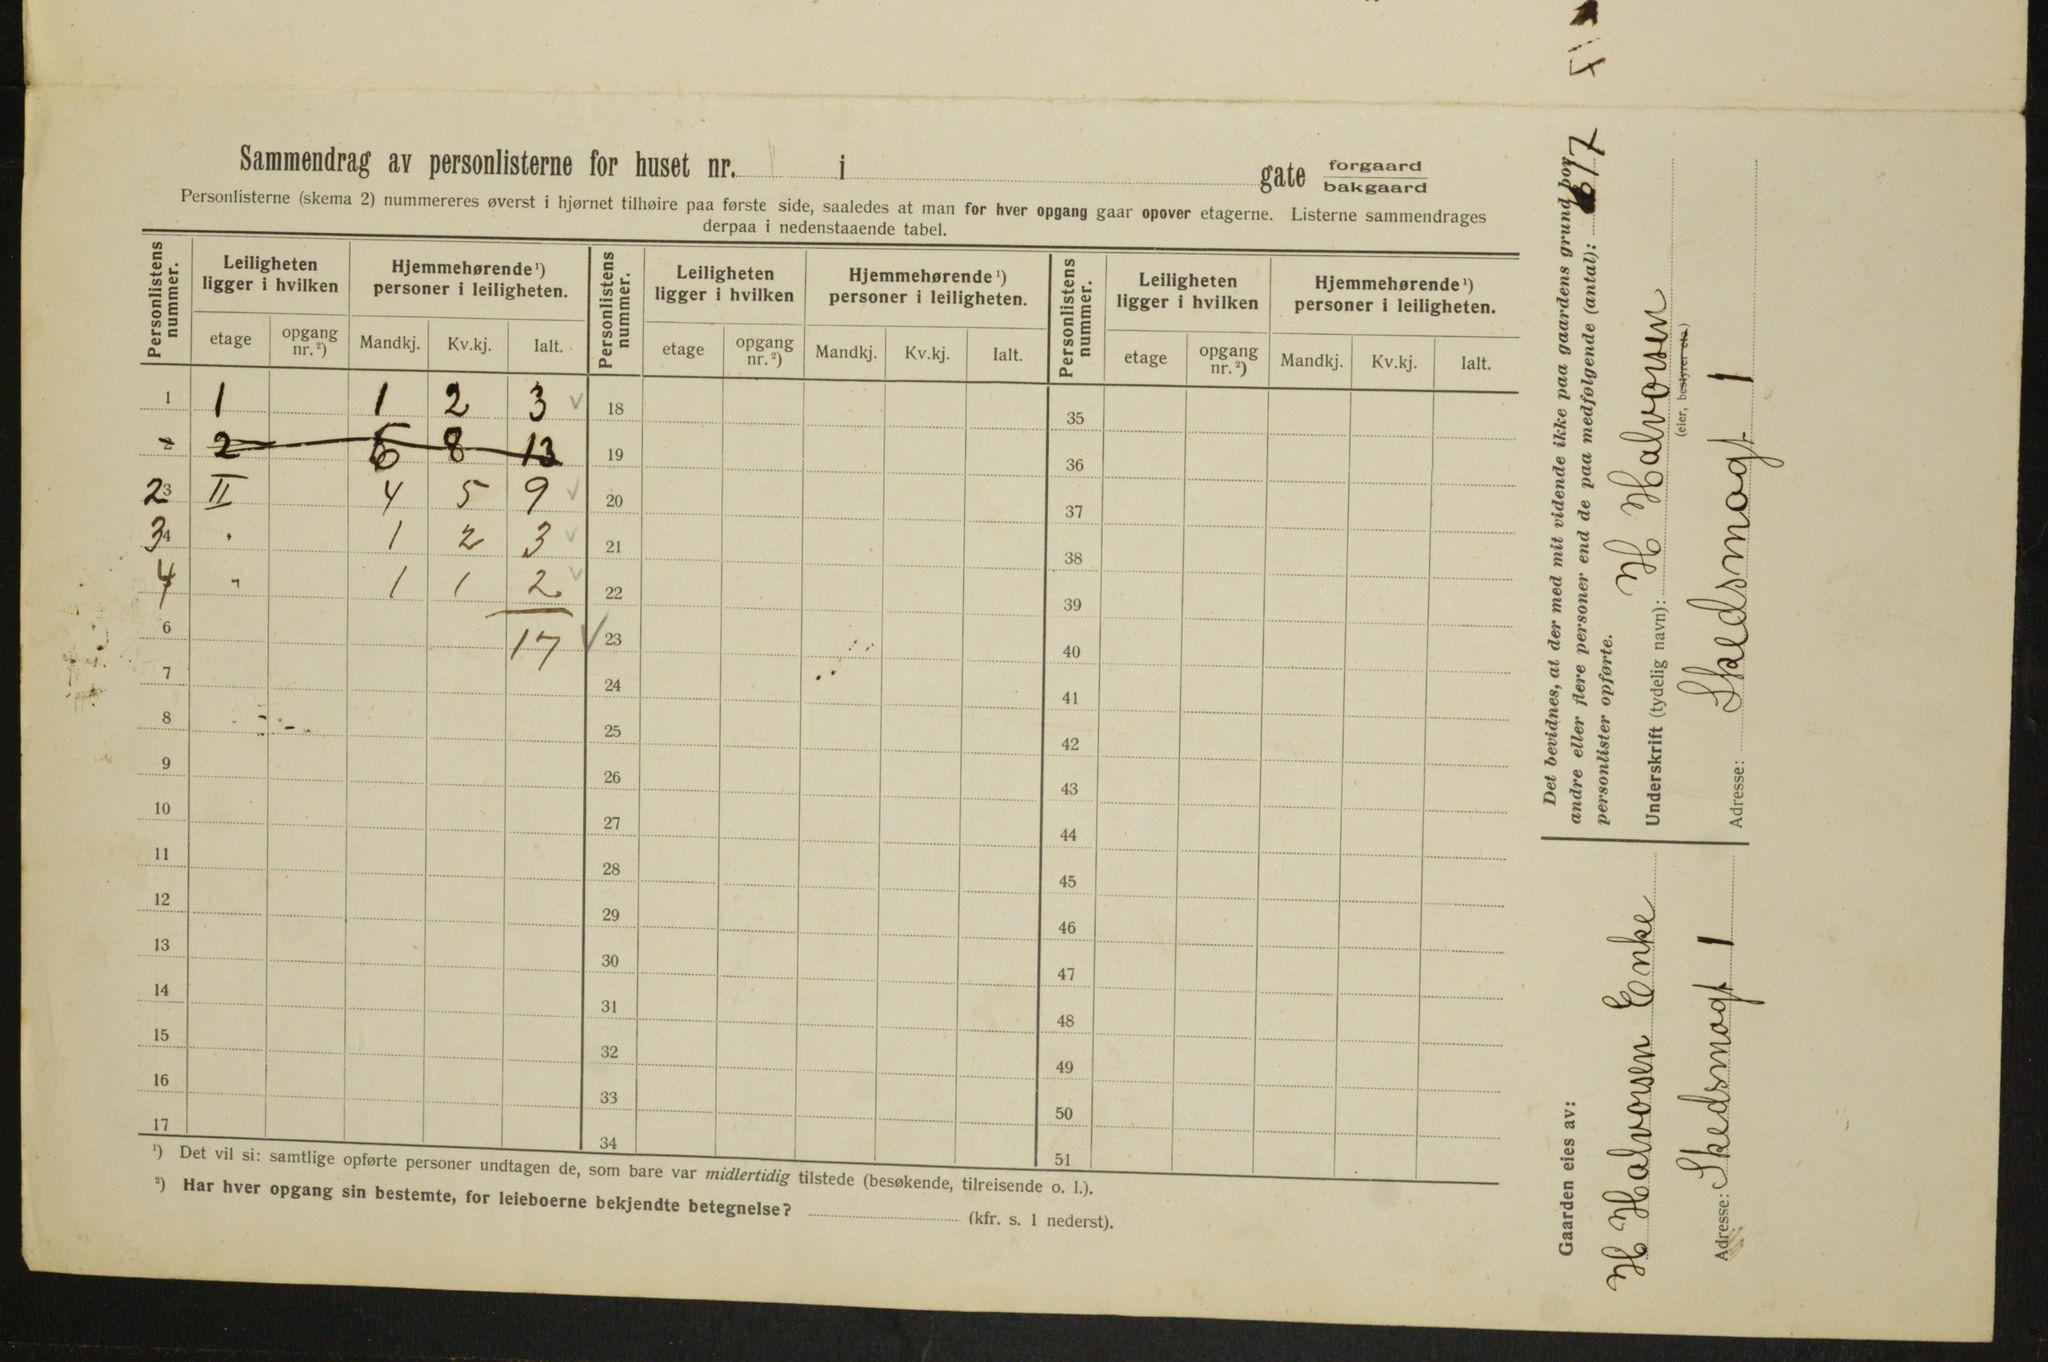 Sammendrag av personlisterne for huset nr. i gate forgaard
bakgaard
Personlisterne (skema 2) nummereres øverst i hjørnet tilhøire paa første side, saaledes at man for hver opgang gaar opover etagerne. Listerne sammendrages
derpaa i nedenstaaende tabel.
Personlistens nummer. Leiligheten ligger i hvilken Hjemmehørende ¹) personer i leiligheten. Personlistens nummer. Leiligheten ligger i hvilken Hjemmehørende ¹) personer i leiligheten. Personlistens nummer. Leiligheten ligger i hvilken Hjemmehørende ¹) personer i leiligheten.
etage opgang nr. ²) Mandkj. Kv.kj. Ialt. etage opgang nr. ²) Mandkj. Kv.kj. Ialt. etage opgang nr. ²) Mandkj. Kv.kj. Ialt.
1 1 1 2 3 18 35
2 2 8 13 19 36
2 3 II 4 5 9 20 37
3 4 " 1 2 3 21 38
4 " 1 1 2 22 39
6 17 23 40
7 24 41
8 25 42
9 26 43
10 27 44
11 28 45
12 29 46
13 30 47
14 31 48
15 32 49
16 33 50
17 34 51
¹) Det vil si: samtlige opførte personer undtagen de, som bare var midlertidig tilstede (besøkende, tilreisende o. l.).
²) Har hver opgang sin bestemte, for leieboerne bekjendte betegnelse? (kfr. s. 1 nederst).
Det bevidnes, at der med mit vidende ikke paa gaardens grund bor
andre eller flere personer end de paa medfølgende (antal): 17
personlister opførte.
Underskrift (tydelig navn): H Halvorsen
(eier, bestyrer etc.)
Adresse: Skedsmogt 1
Gaarden eies av:
H Halvorsen Enke
Adresse: Skedsmogt 1